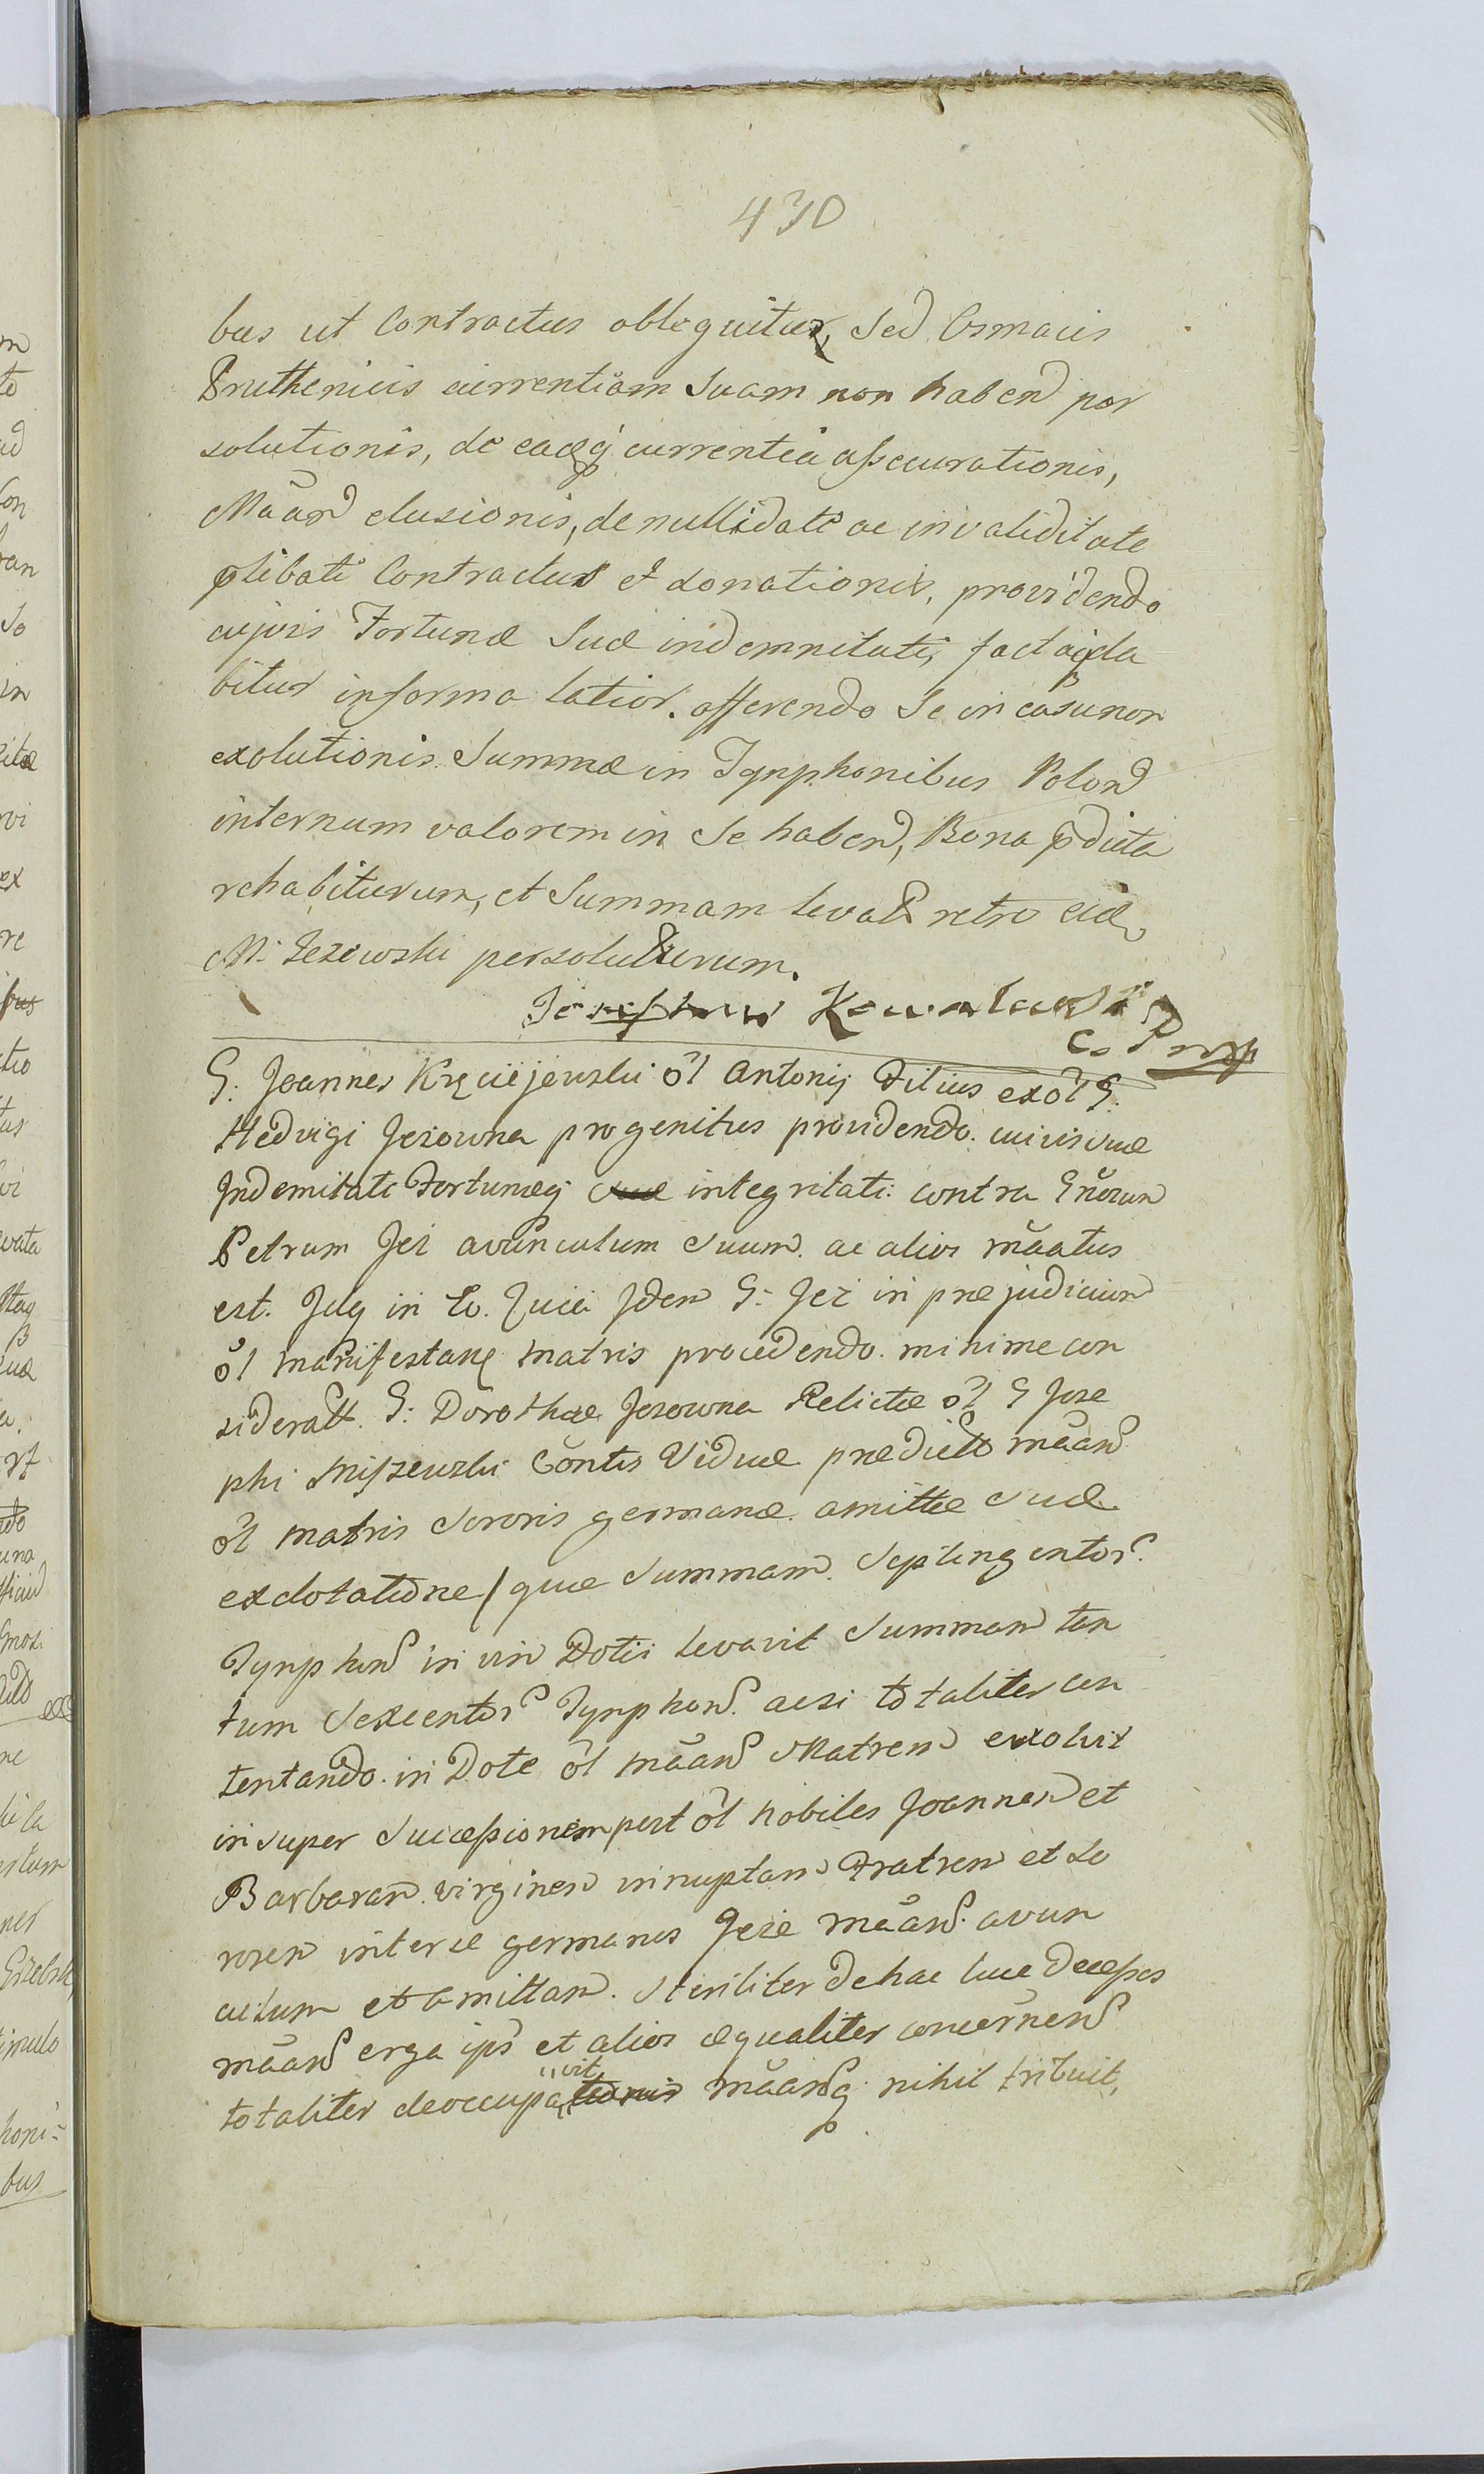 430
bus ut Contractus obloquitur, Sed Osmacis
Pruthenicis currentiam Suam non habend per
solutionis, de eadẽq currentia assecurationis,
Māan̄ elusionis, de nullidate ac invaliditate
p̄libati Contractus et donationis, providendo
cujvis Fortunæ Suæ indemnitati, fact
bitur in forma latior. offerendo Se in casu non
exolutionis Summæ in Tynphonibus Polon̄
internum valorem in Se haben̄, Bona p̄dicta
rehabiturum, et Summam levat̄ retro eid̄
M: Jezewski persoluturum.
Josephus Kowalewski
G: Joannes Kręciejewski ōl Antonij Filius ex ōl G:
Hedvigi Jezowna progenitus providendo cuivis suæ
Indemitati Fortunæq suæ integritati contra Gn̄orum
Petrum Jez avunculum Suum ac alios māatus
est. Idq in Eo. Quia Iden̄ G: Jez in præjudicium
ōl manifestan̄ matris procedendo minime con
siderat̄. G: Dorothæ Jezowna Relictæ ōl G Jose
phi Miszewski Cōntis Viduæ prædict̄ māan̄
ōl matris Sororis germanæ amittæ Suæ
exdotatione / quæ Summam Septingentor̄
Tynphon̄ in vim Dotis levavit Summam tan
tum Sexcentor̄ Tynphon̄ acsi totaliter con
tentando in Dote ōl māan̄ Matrem exolvit
insuper Successionem post ōl nobiles Joannem et
Barbaram virginem innuptam Fratrem et So
rorem inter se germanos Jezie māan̄ avun
culum et Amittam Steriliter de hac luce decessos
māan̄ erga ips̄ et alios æqualiter concernen̄
vit
totaliter deoccupa māan̄q nihil tribuit,